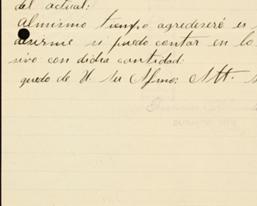 del actual:
Al mismo tiempo agredeseré es
desirme si puedo contar en lo
sivo con dicha cantidad:
quedo de U. su Afmo: Att.